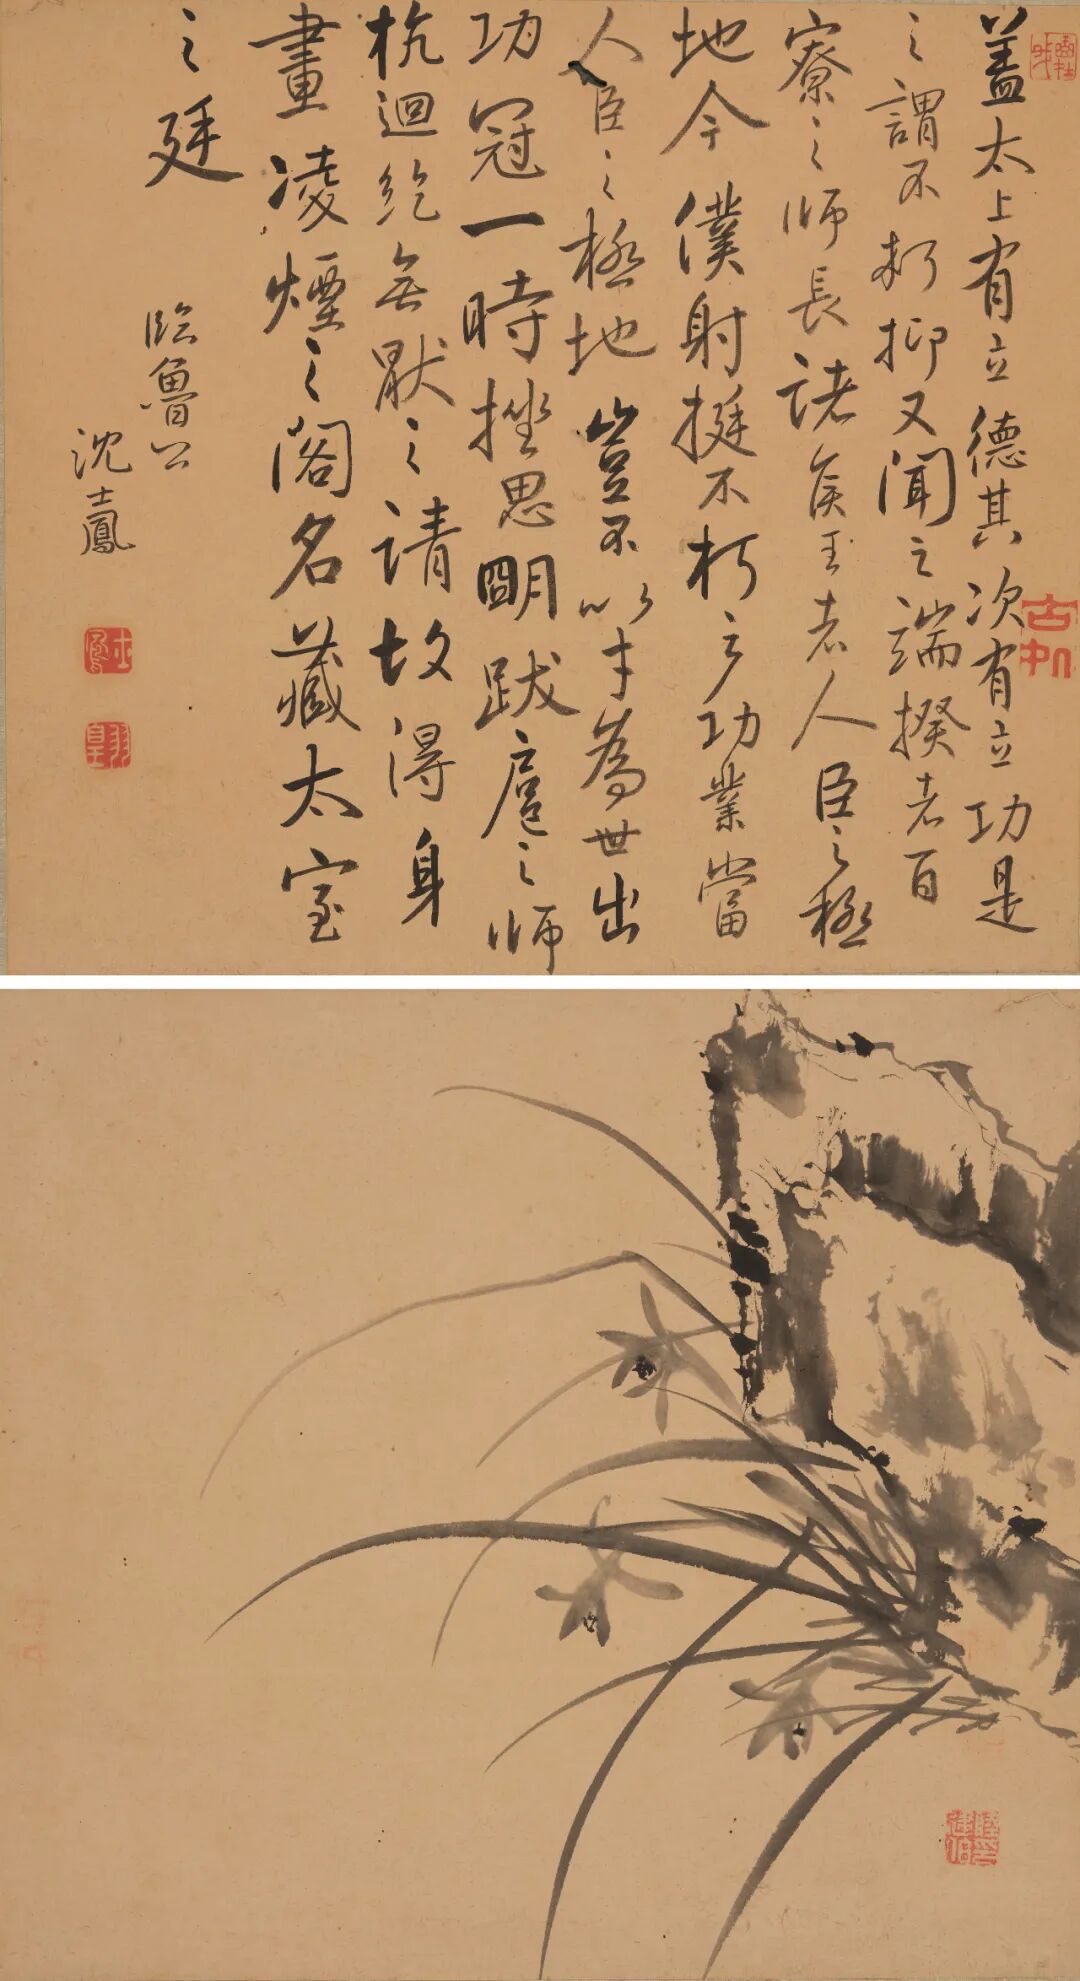 蓋太上有立德其次有立功是
之謂不朽抑又聞之端揆者百
寮之師長諸侯王者人臣之極
地今僕射挺不朽之功業當
人臣之極地豈不以才為世出
功冠一時挫思明跋扈之師
杭迴紇無厭之請故得身
畫凌煙之閣名藏太室
之廷
臨魯公
沈鳳